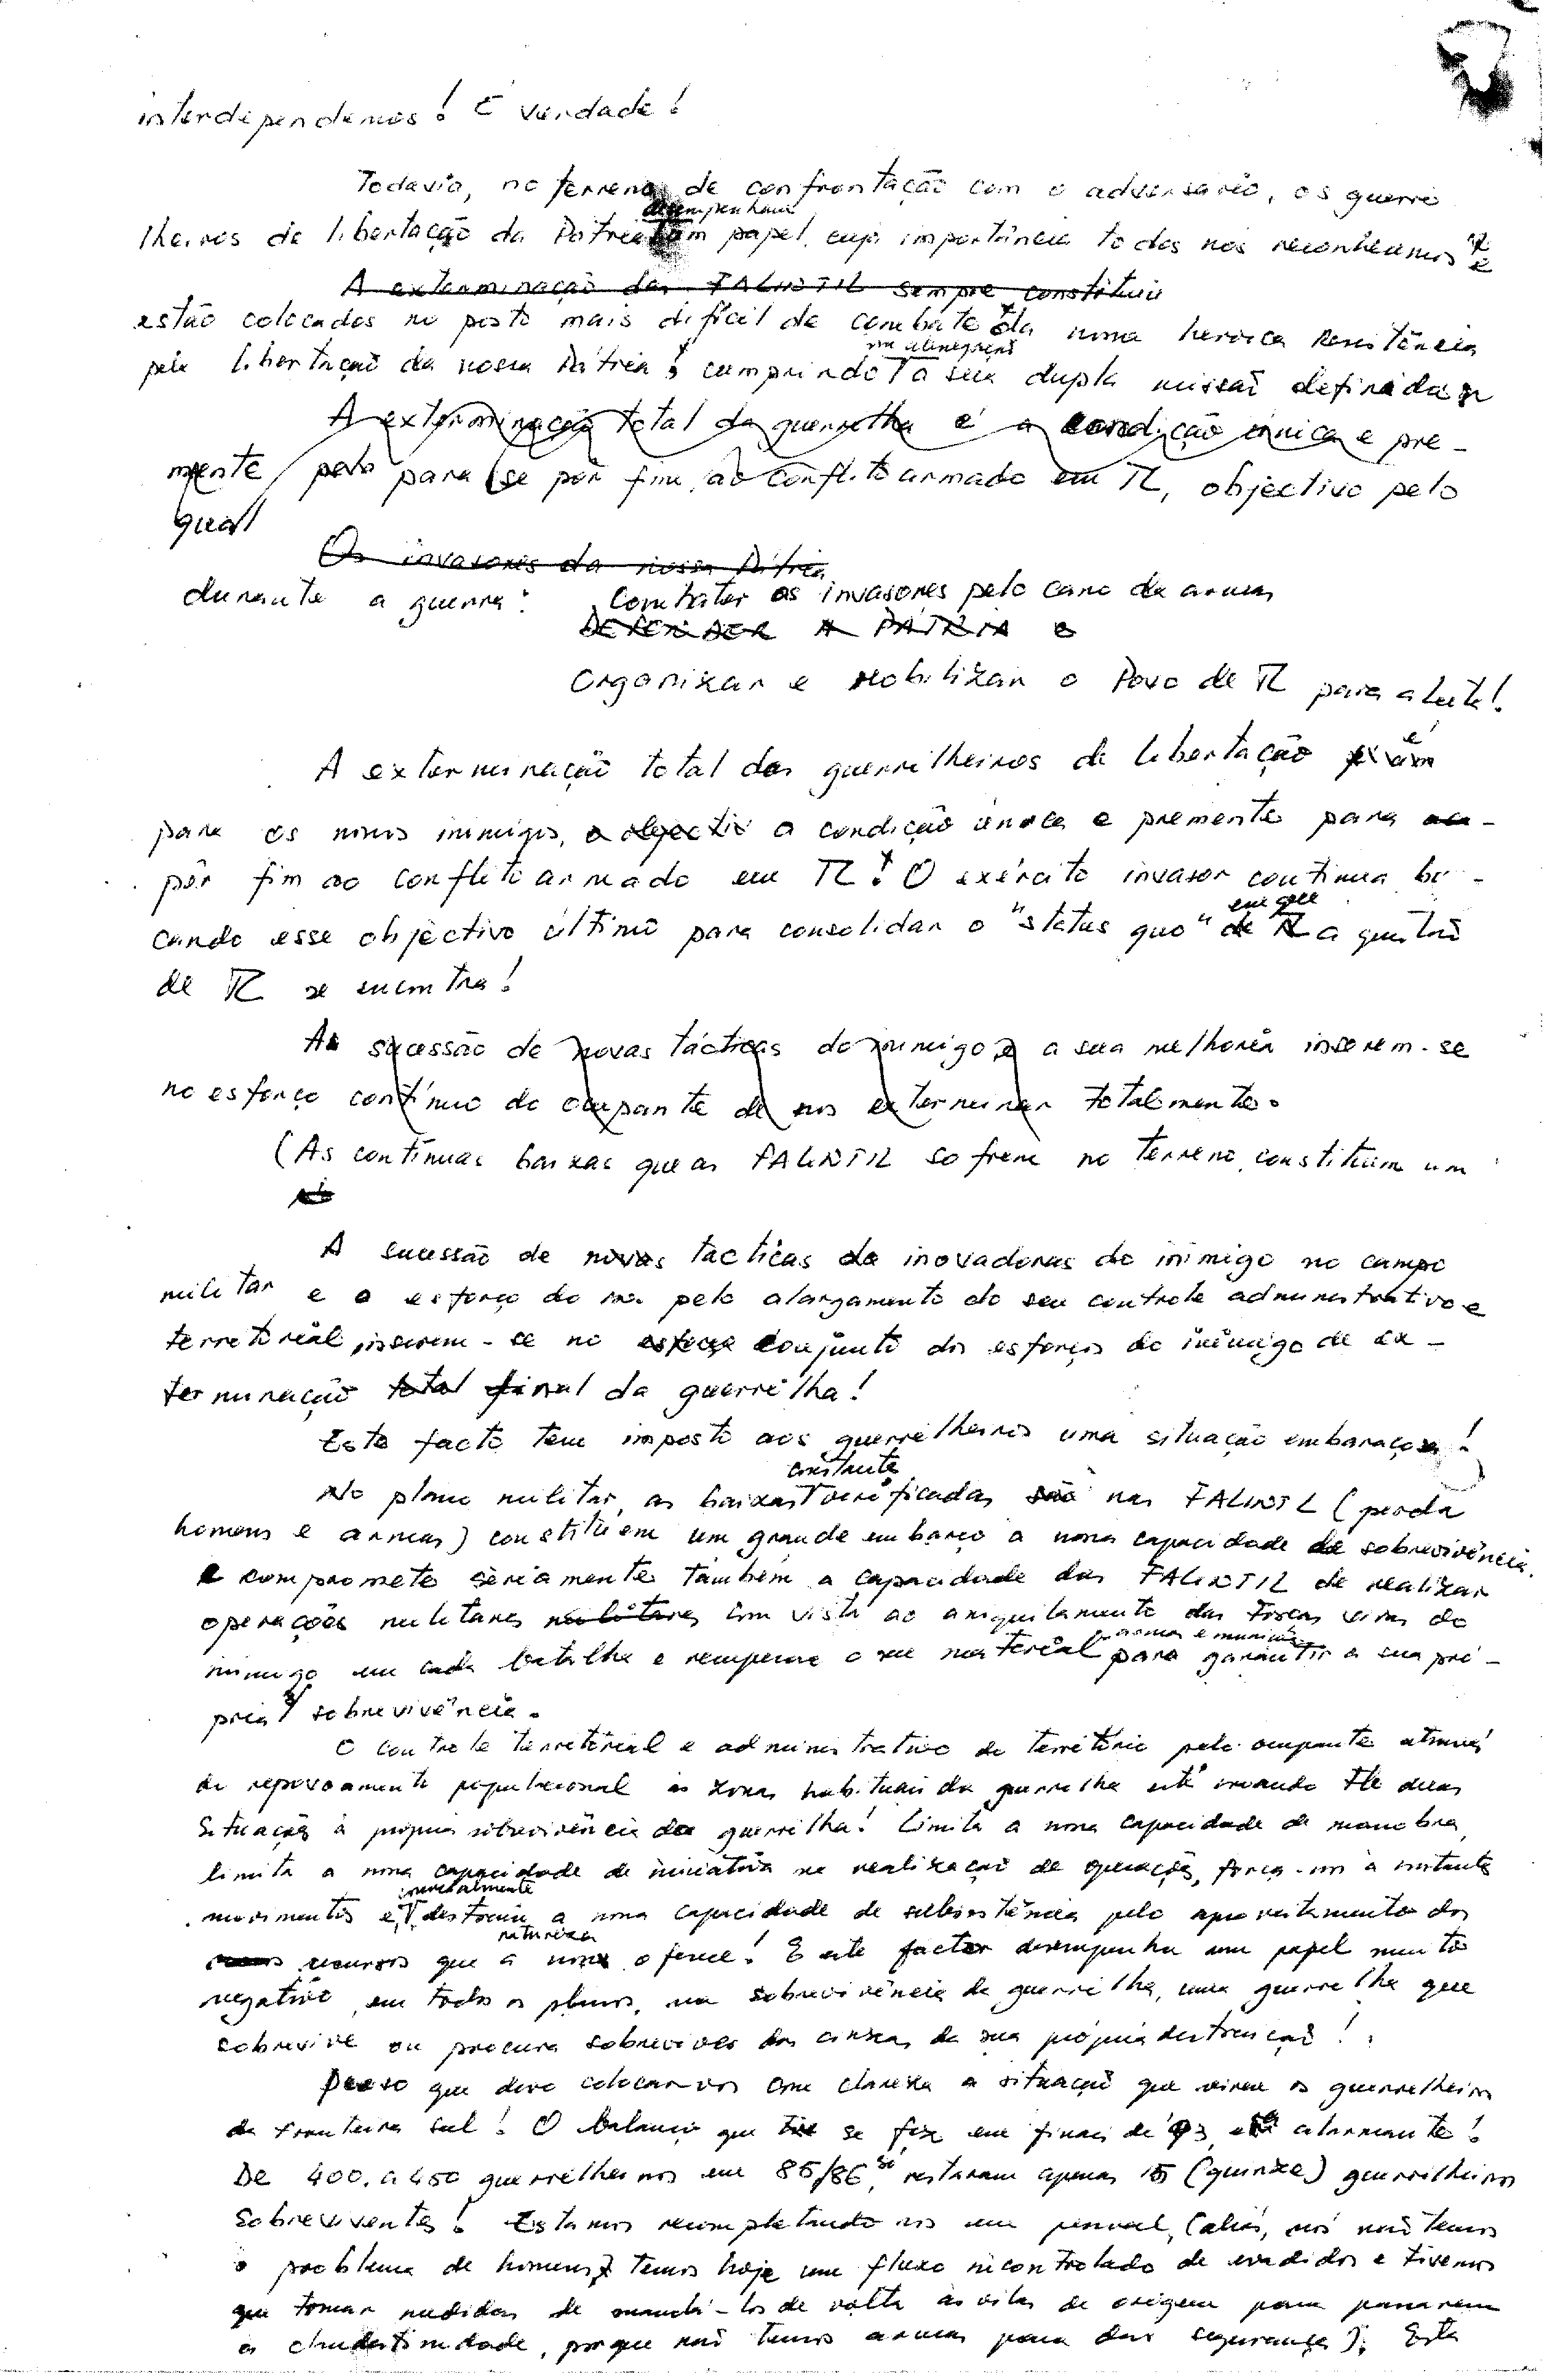 interdependemos! É verdade!
Todavia, no terreno de confrontação com o adversário, os guerri
desempenham
lheiros de libertação da Pátria um papel, cuja importância todos nós reconhecemos e
A exterminação das FALINTIL sempre constituiu
estão colocados no posto mais difícil de combate da nossa heróica Resistência
em abnegação
pela libertação da nossa Pátria, cumprindo a sua dupla missão definida
A exterminação total da guerrilha é a condição única e pre-
mente para se pôr fim ao conflito armado em TL, objectivo pelo
qual
Os invasores da nossa Pátria
durante a guerra: Combater os invasores pelo cano da arma
DEFENDER A PÁTRIA e
Organizar e Mobilizar o Povo de TL para a luta!
A exterminação total dos guerrilheiros de libertação é
para os nossos inimigos, o objectivo a condição única e premente para
pôr fim ao conflito armado em TL! O exército invasor continua bus-
em que
cando esse objectivo último para consolidar o "status quo" de TL a questão
de TL se encontra!
A sucessão de novas tácticas do inimigo e a sua melhoria inserem-se
no esforço contínuo do ocupante de nos exterminar totalmente.
(As contínuas baixas que as FALINTIL sofrem no terreno, constituem um
A sucessão de novas tácticas inovadoras do inimigo no campo
militar e o esforço do pelo alargamento do seu controle administrativo e
territorial, inserem-se no esforço conjunto dos esforços do inimigo de ex-
terminação total final da guerrilha!
Este facto tem imposto aos guerrilheiros uma situação embaraçosa!
constantes
No plano militar, as baixas verificadas são nas FALINTIL (perda
homens e armas) constituem um grande embaraço a nossa capacidade de sobrevivência
e compromete sèriamente também a capacidade das FALINTIL de realizar
operações militares militares com vista ao aniquilamento das forças vivas do
armas e munições
inimigo em cada batalha e recuperar o seu material para garantir a sua pró-
pria sobrevivência.
O controle territorial e administrativo do território pelo ocupante através
do repovoamento populacional às zonas habituais da guerrilha está criando duas
situações à própria sobrevivência da guerrilha! Limita a nossa capacidade de manobra,
limita a nossa capacidade de iniciativa na realização de operações, força-nos a constantes
movimentos e destruiu a nossa capacidade de subsistência pelo aproveitamento dos
natureza
recursos que a nossa oferece! E este factor desempenha um papel muito
negativo, em todos os planos, na sobrevivência da guerrilha, uma guerrilha que
sobrevive ou procura sobreviver das cinzas da sua própria destruição!
Penso que devo colocar-vos com clareza a situação que vivem os guerrilheiros
da fronteira sul! O balanço que se fez em finais de 93, é alarmante!
só
De 400 a 450 guerrilheiros em 85/86, restaram apenas 15 (quinze) guerrilheiros
sobreviventes! Estamos recompletando-nos em pessoal, (aliás, nós não temos
o problema de homens, temos hoje um fluxo incontrolado de evadidos e tivemos
que tomar medidas de mandá-los de volta às vilas de origem para passarem
a clandestinidade, porque não temos armas para dar segurança); Esta